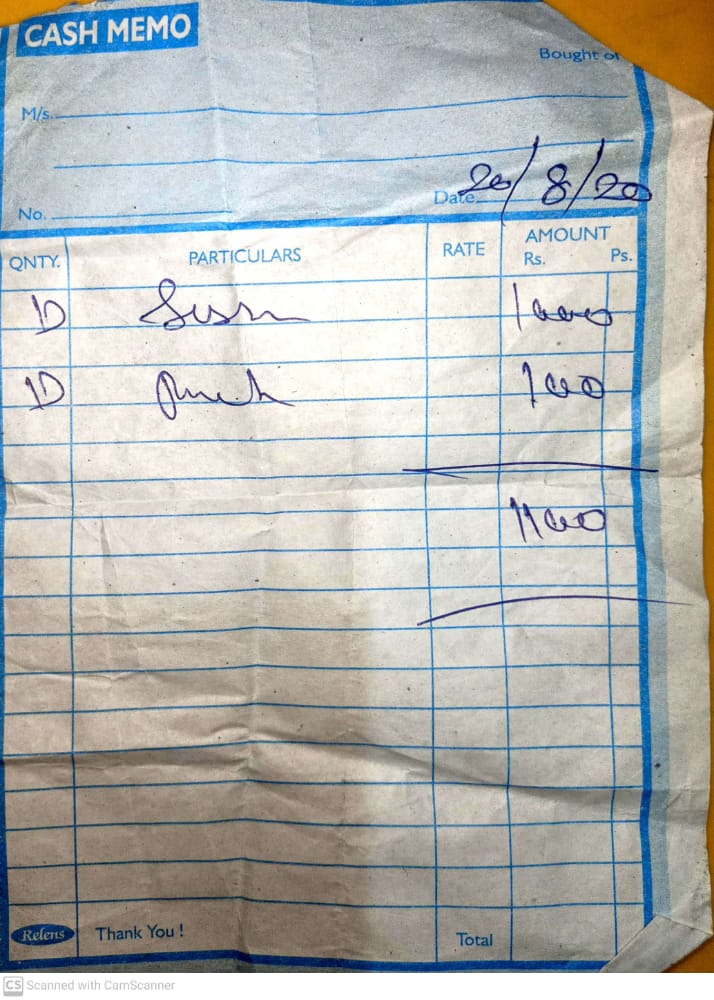 CASH MEMO
Bought of
M/s.
20/8/20
No. Date
QNTY. PARTICULARS RATE AMOUNT
Rs. Ps.
10 1000
10 100
1100
Relens Thank You ! Total
CS Scanned with CamScanner